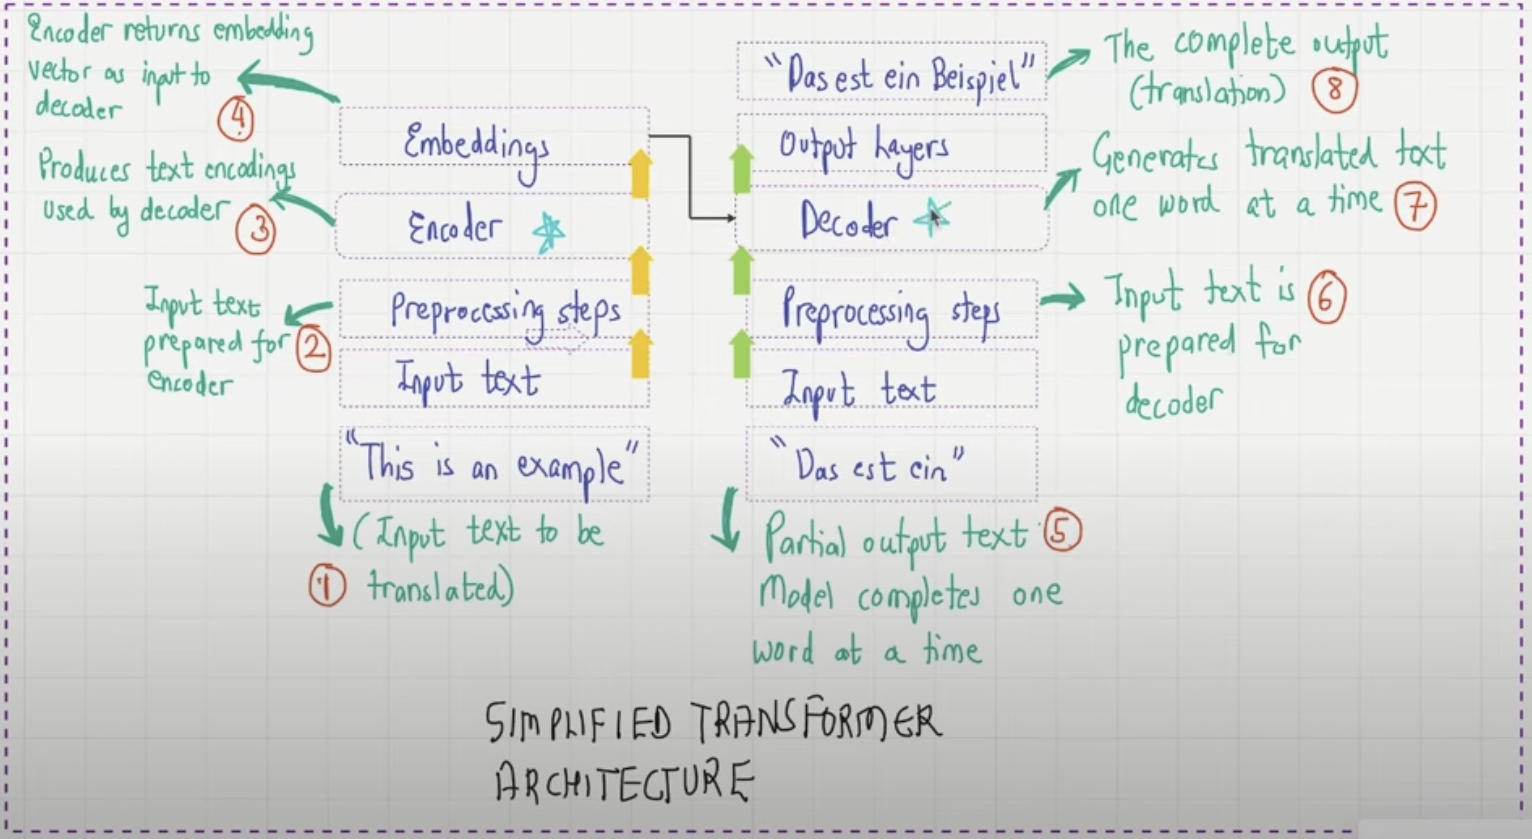 Encoder returns embedding
vector as input to
decoder
4
Produces text encodings
used by decoder
3
Input text
prepared for
encoder
2
Embeddings
Encoder
Preprocessing steps
Input text
"This is an example"
(Input text to be
translated)
1
"Das est ein Beispiel"
Output Layers
Decoder
Preprocessing steps
Input text
"Das est ein"
Partial output text
5
Model completes one
word at a time
The complete output
(translation)
8
Generates translated text
one word at a time
7
Input text is
6
prepared for
decoder
SIMPLIFIED TRANSFORMER
ARCHITECTURE